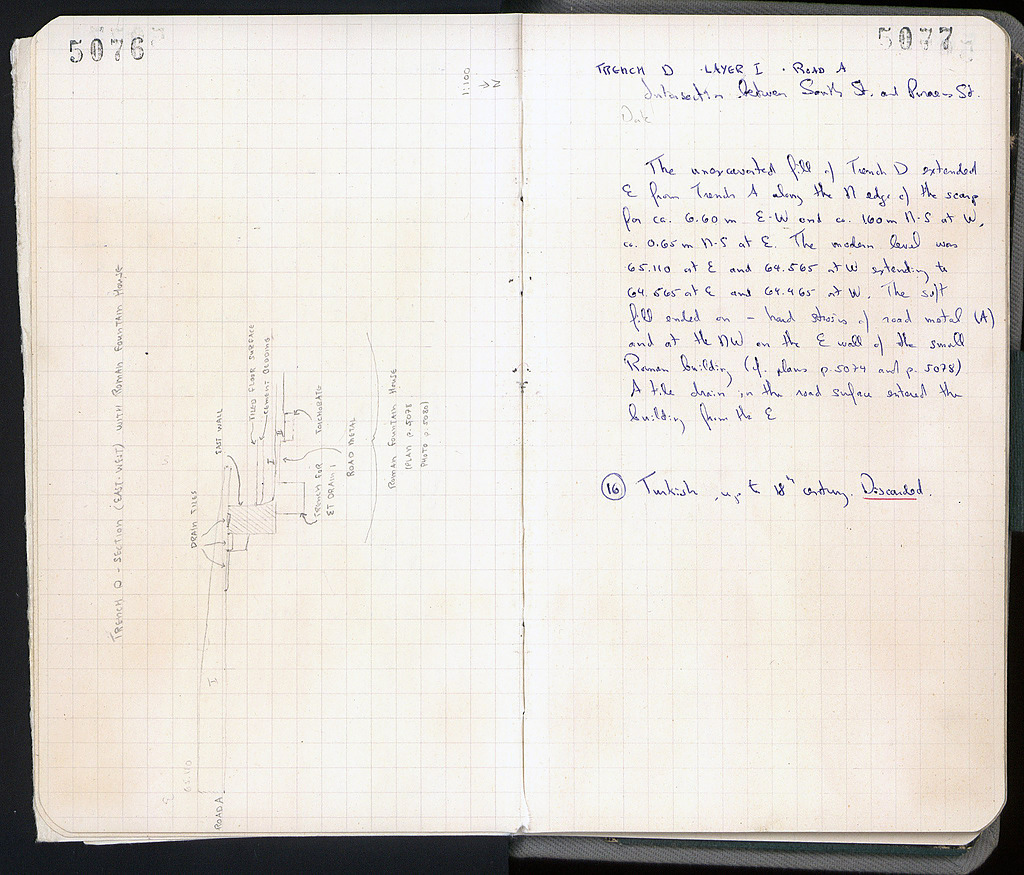 5076
1:100
N
TRENCH D - SECTION (EAST-WEST) WITH ROMAN FOUNTAIN HOUSE
DRAIN TILES
EAST WALL
TILED FLOOR SURFACE
CEMENT BEDDING
I
II
TRENCH FOR
ET DRAIN I
ROAD METAL
ROMAN FOUNTAIN HOUSE
(PLAN P. 5078
PHOTO P. 5080)
I
E
65.110
ROAD A
5077
TRENCH D · LAYER I · ROAD A
Intersection between South St. and St.
Date
The unexcavated fill of Trench D extended
E from Trench A along the N edge of the scarp
for ca. 6.60 m E-W and ca. 160 m N-S at W,
ca. 0.65 m N-S at E. The modern level was
65.110 at E and 64.565 at W extending to
64.565 at E and 64.465 at W. The soft
fill ended on - hard strosis of road metal (A)
and at the NW on the E wall of the small
Roman building (cf. plans p. 5074 and p. 5078)
A tile drain in the road surface entered the
building from the E
16 Turkish, up to 18th century. Discarded.